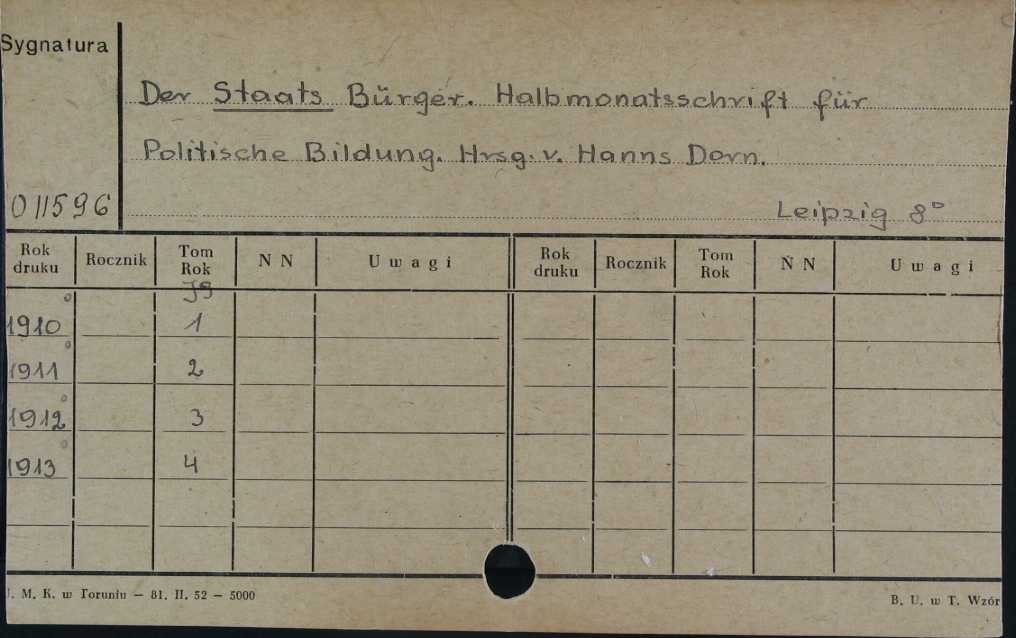 Sygnatura
Der Staats Bürger. Halbmonatsschrift für
Politische Bildung. Hrsg. v. Hanns Dorn.
011596
Leipzig 8°
Rok druku Rocznik Tom Rok N N Uwagi Rok druku Rocznik Tom Rok N N Uwagi
Jg
1910 1
1911 2
1912 3
1913 4
. M. K. w Toruniu — 81. II. 52 — 5000
B. U. w T. Wzór